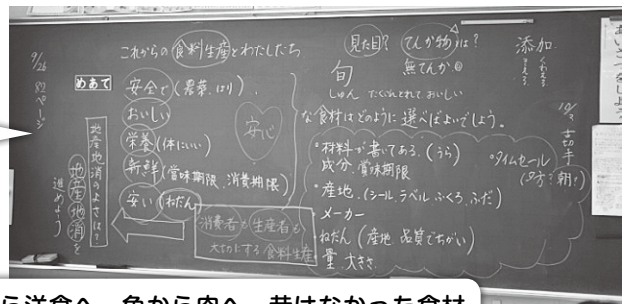 9/26
812ページ
これからの食料生産とわたしたち
めあて
安全で(農薬.はり)、
おいしい
栄養(体にいい)
新鮮(賞味期限.消費期限)
安い(ねだん)
安心
消費者も生産者も
大切にする食料生産
地産地消のよさは?
地産地消を
進めよう
見た目?
てんか物は?
無てんか
添加
くわえる
旬
しゅん たくさんとれて、おいしい
な食材はどのように選べばよいでしょう。
・材料が書いてある.(うら)
成分.賞味期限
・産地.(シール.ラベル.ふくろ.ふだ)
メーカー
ねだん(産地.品質でちがい)
量.大きさ
・タイムセール
(夕方?朝?)
切手
ら洋食へ、魚から肉へ、昔はなかった食材